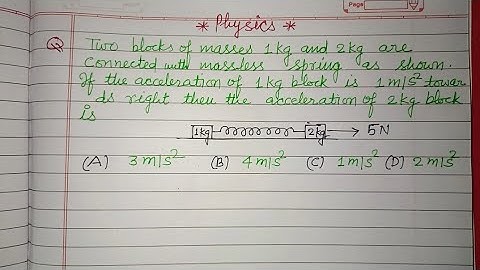 Page
* Physics *
Q Two blocks of masses 1kg and 2kg are
connected with massless spring as shown.
If the acceleration of 1kg block is 1m/s² towar
ds right then the acceleration of 2kg block
is
1kg 2kg 5N
(A) 3m/s² (B) 4m/s² (C) 1m/s² (D) 2m/s²